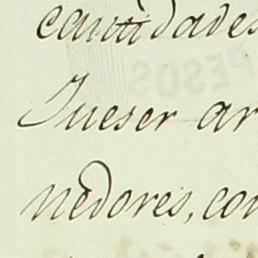 cantidades
Jueser ar
nedores, con